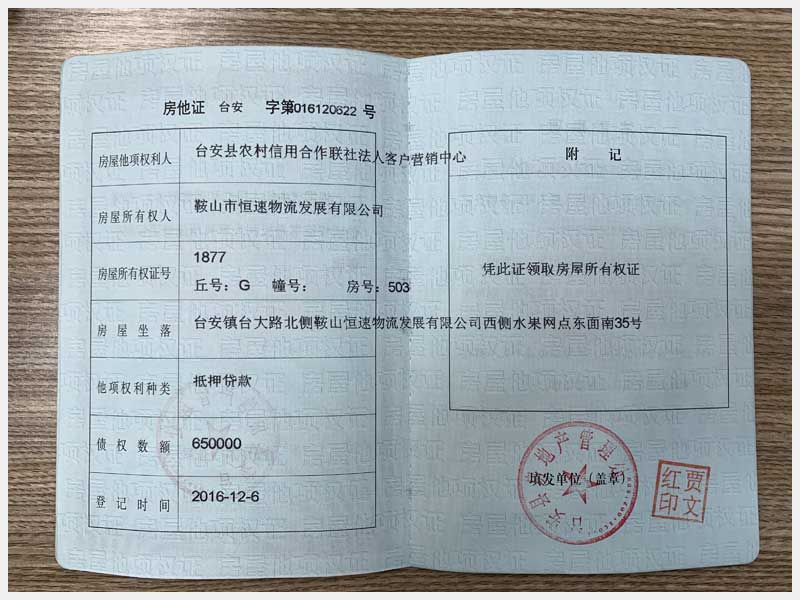 房他证 台安 字第016120622 号
房屋他项权利人 台安县农村信用合作联社法人客户营销中心
房屋所有权人 鞍山市恒速物流发展有限公司
房屋所有权证号 1877
丘号：G 幢号： 房号：503
房屋坐落 台安镇台大路北侧鞍山恒速物流发展有限公司西侧水果网点东面南35号
他项权利种类 抵押贷款
债权数额 650000
登记时间 2016-12-6
附 记
凭此证领取房屋所有权证
台安县房地产管理处
填发单位（盖章）
贾文红印